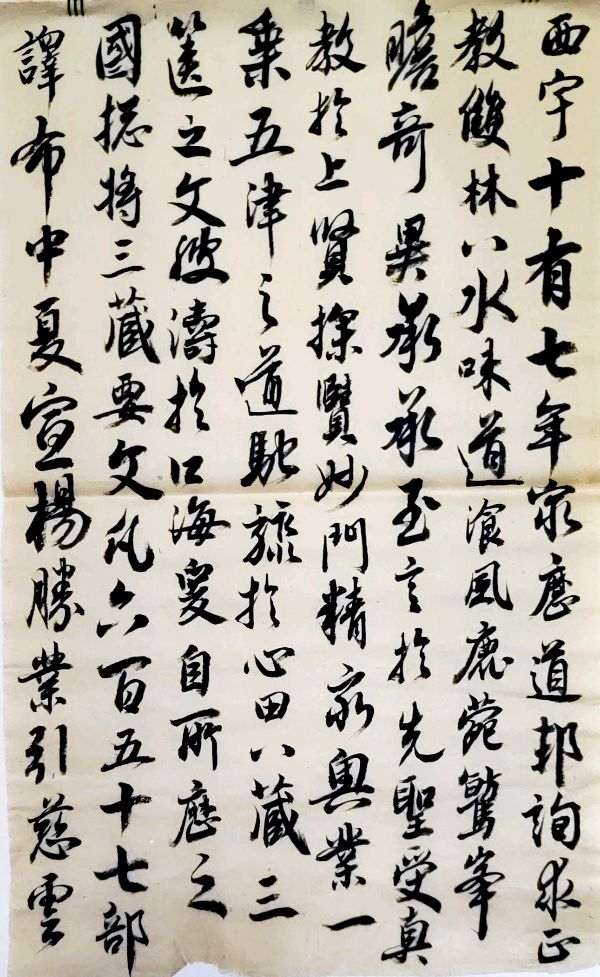 西宇十有七年窮歷道邦詢求正
教雙林八水味道飡風鹿菀鷲峯
瞻奇異承承至言於先聖受真
教於上賢探賾妙門精窮奧業一
乘五津之道馳驟於心田八藏三
篋之文波濤於口海爰自所歷之
國摠將三藏要文凡六百五十七部
譯布中夏宣楊勝業引慈雲